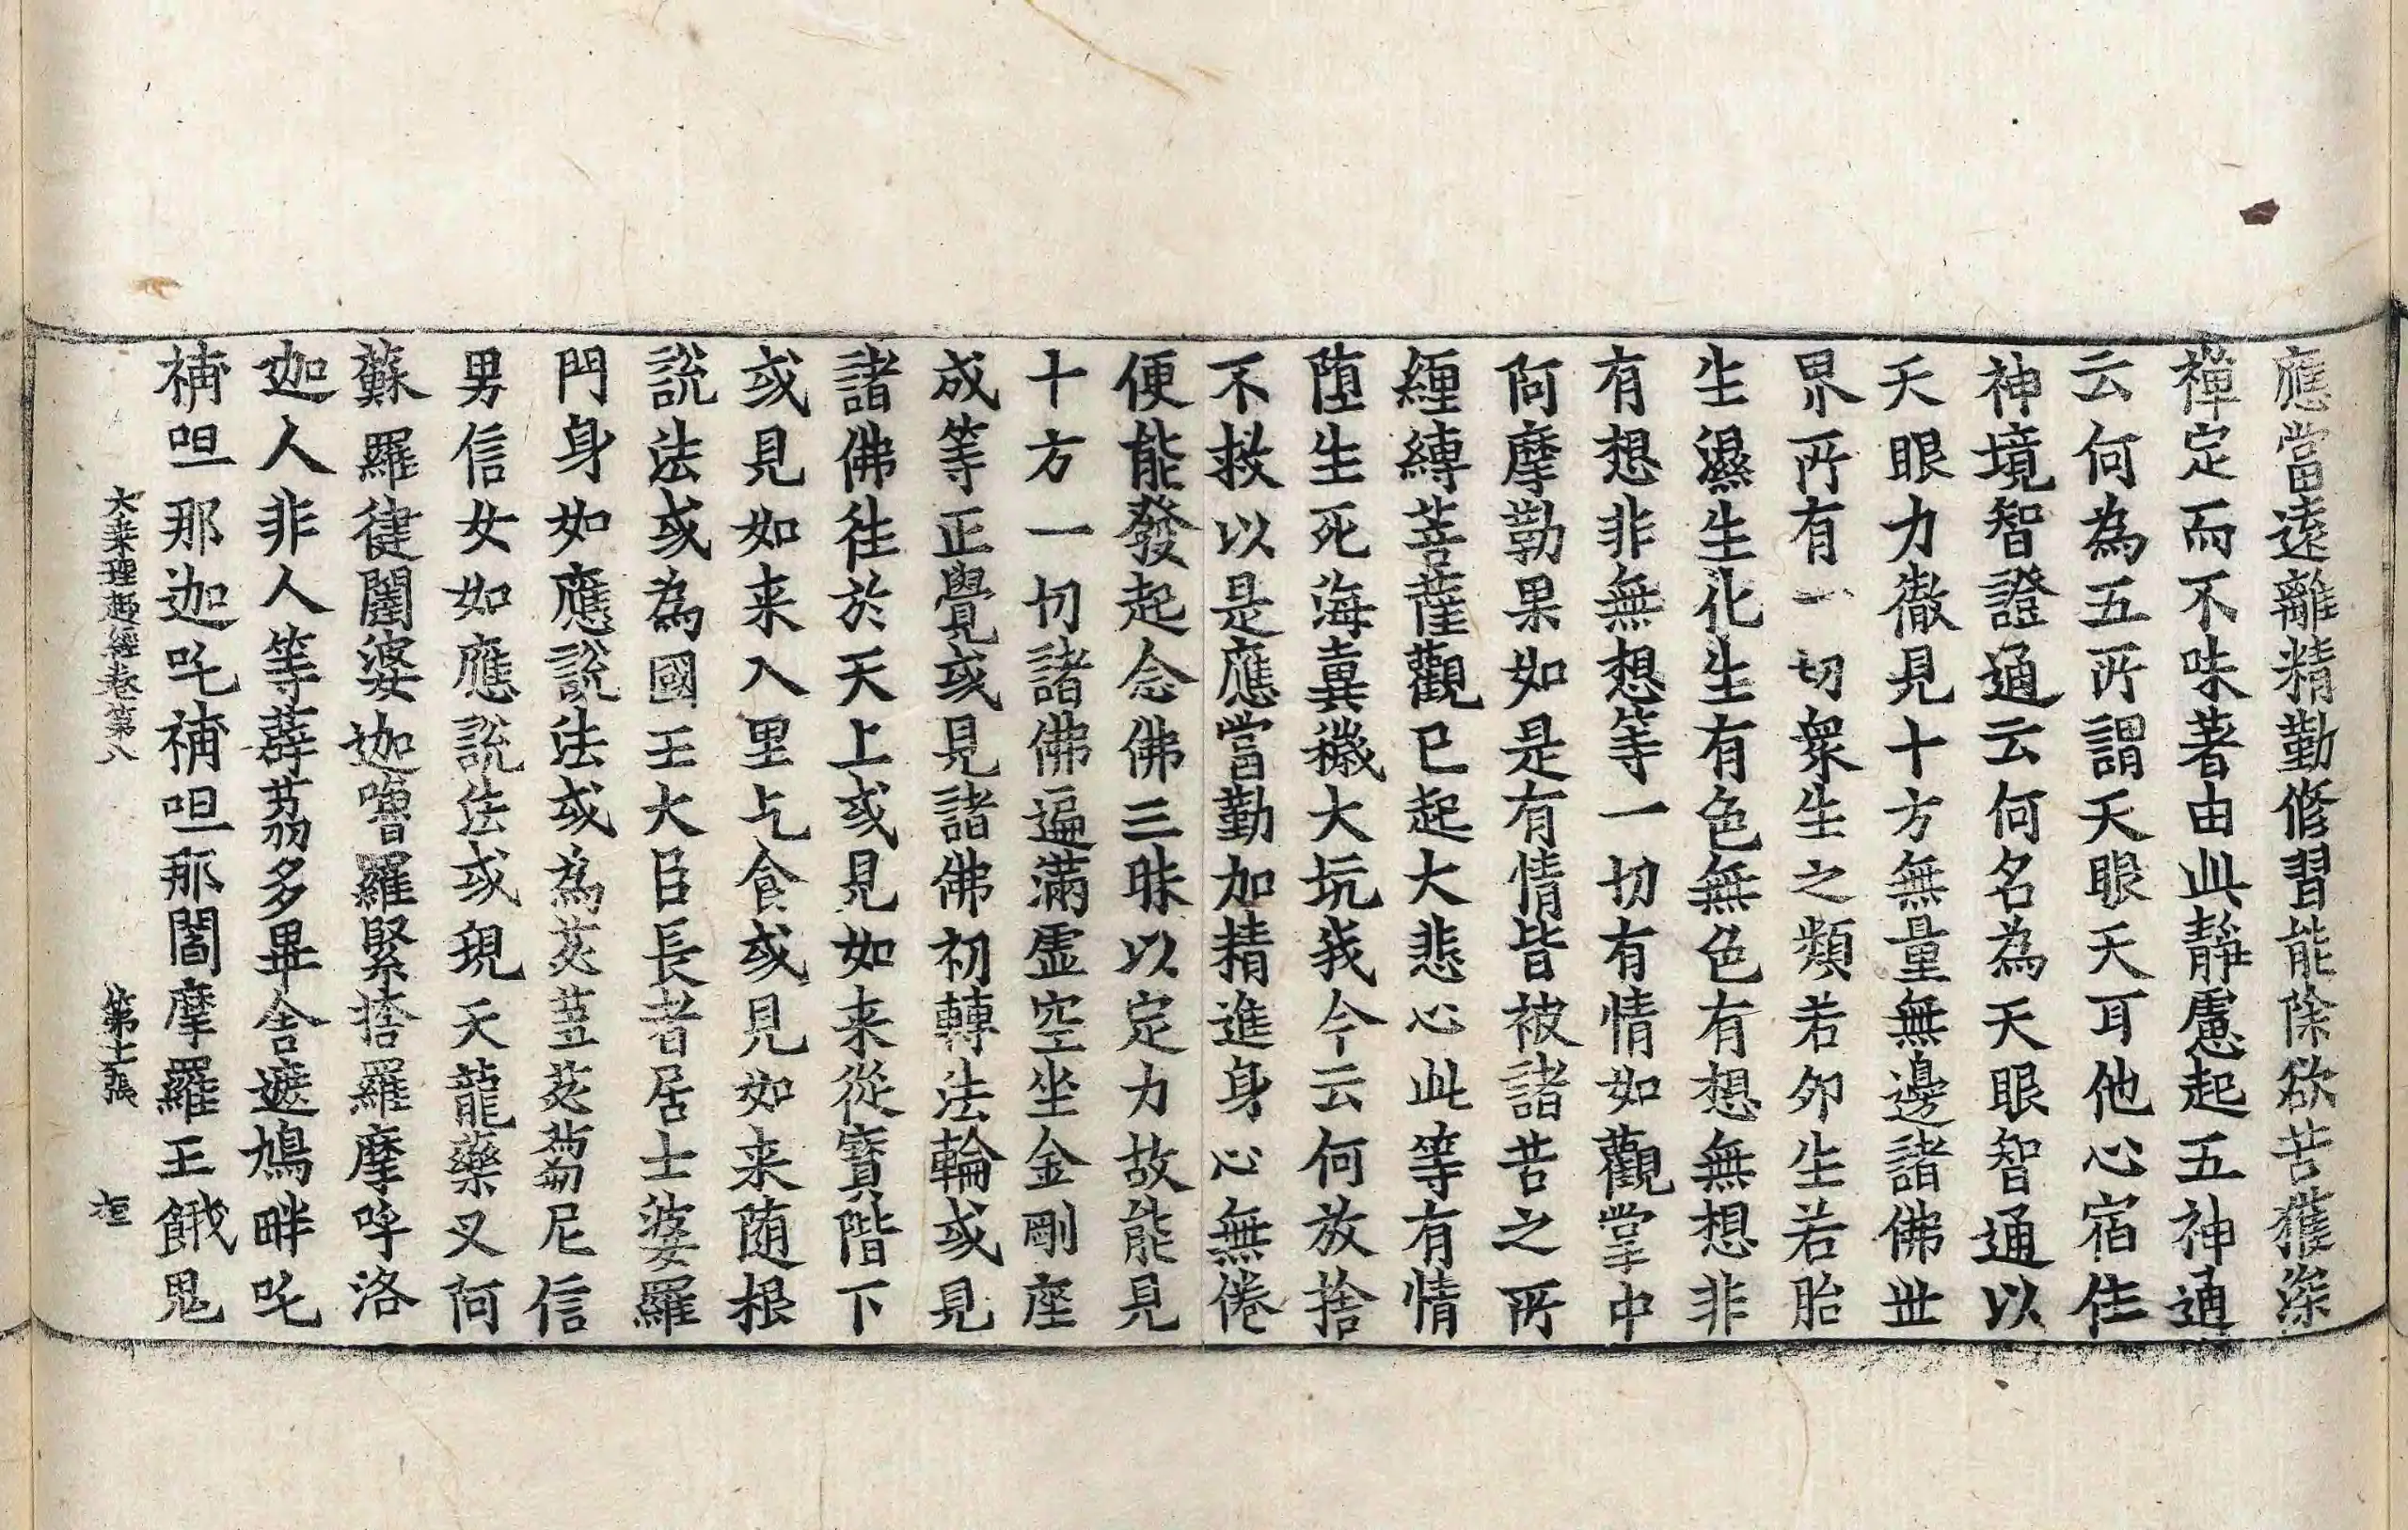 應當遠離精勤修習能除欲苦獲深
禪定而不味著由此靜慮起五神通
云何為五所謂天眼天耳他心宿住
神境智證通云何名為天眼智通以
天眼力徹見十方無量無邊諸佛世
界所有一切眾生之類若卵生若胎
生濕生化生有色無色有想無想非
有想非無想等一切有情如觀掌中
阿摩勒果如是有情皆被諸苦之所
纏縛菩薩觀已起大悲心此等有情
墮生死海糞穢大坑我今云何放捨
不救以是應當勤加精進身心無倦
便能發起念佛三昧以定力故能見
十方一切諸佛遍滿虛空坐金剛座
成等正覺或見諸佛初轉法輪或見
諸佛往於天上或見如来從寶階下
或見如来入里乞食或見如来随根
說法或為國王大臣長者居士婆羅
門身如應說法或為苾蒭苾蒭尼信
男信女如應說法或現天龍藥叉阿
蘇羅健闥婆迦嚕羅緊捺羅摩呼洛
迦人非人等薜茘多畢舍遮鳩畔吒
補呾那迦吒補呾那閻摩羅王餓鬼
大乘理趣經卷第八 第十二張 桓